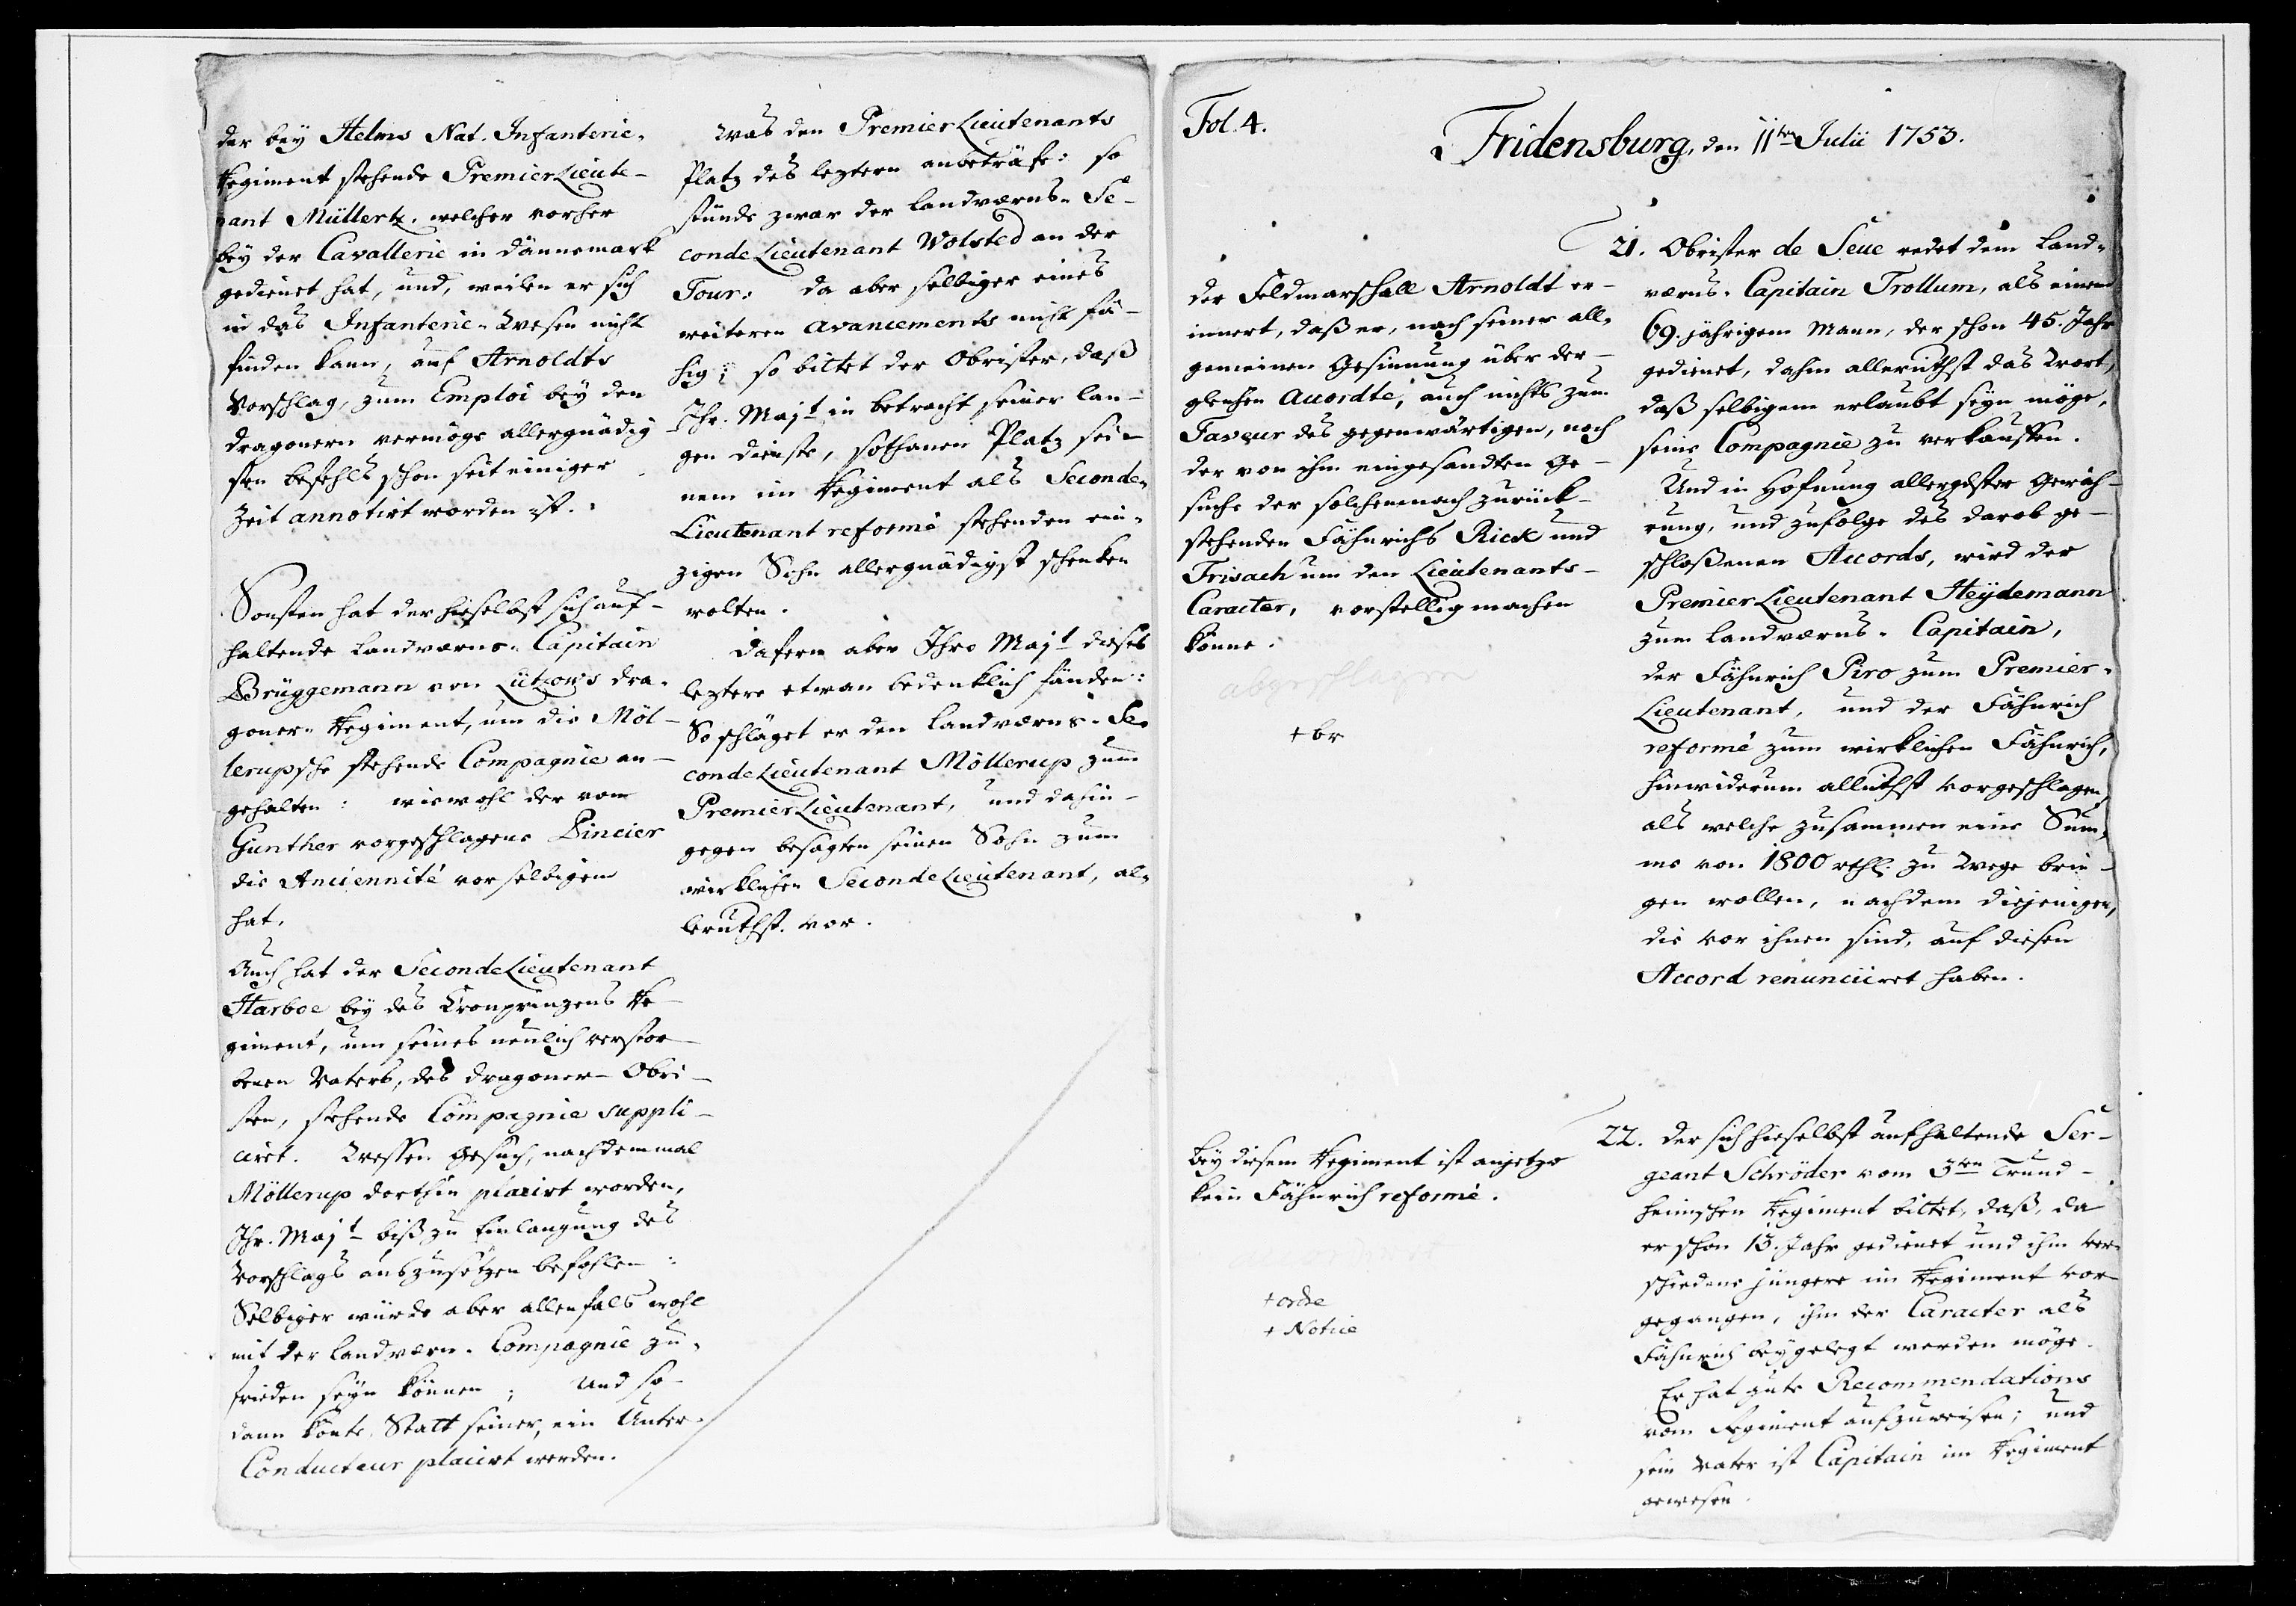 der bey Helms Nat. Infanterie-
Regiment stehende PremierLieute-
nant Müllertz. welcher vorher
bey der Cavallerie in Dännemark
gedienet hat, und, weilen er sich
in das Infanterie-Wesen nicht
finden kann, auf Arnoldts
Vorschlag, zum Emploi bey den
Dragonern vermöge allergnädig
sten Befehls schon seit einiger
Zeit annotirt worden ist.
Sonsten hat der hieselbst sich auf-
haltende Landværns-Capitain
Brüggemann von Lützow's Dra-
goner-Regiment, um die Möl-
lerupsche stehende Compagnie an-
gehalten: wiewohl der vom
Gunther vorgeschlagene Pincier
die Anciennité vor selbigem
hat.
Auch hat der SecondeLieutenant
Harboe bey des Cronprinzens Re-
giment, um seines neulich verstor-
benen Vaters, des Dragoner-Obri-
sten, stehende Compagnie suppli-
ciret. Wessen Gesuch, nachdemmal
Möllerup dorthin placirt worden,
Ihr. Majt. biß zu Einlangung des
Vorschlags auszusetzen befohlen:
Selbiger würde aber allenfals wohl
mit der Landværn-Compagnie zu-
frieden seyn können; Und so-
dann könte, Statt seiner, ein Unter-
Conducteur placirt werden.
Was den PremierLieutenants
Platz des leztern anbeträfe: so
stünde zwar der Landværns-Se-
condeLieutenant Wolsted an der
Tour: da aber selbiger eines
weiteren Avancements nicht fä-
hig; so bittet der Obrister, daß
Ihr. Majt. in betracht seiner lan-
gen Dienste, sothanen Platz sei-
nem im Regiment als Seconde-
Lieutenant reformé stehenden ein-
zigen Sohn allergnädigst schenken
wolten.
Dafern aber Ihro Majt. dieses
leztere etwan bedenklich fänden:
So schläget er den Landværns-Se-
condeLieutenant Möllerup zum
PremierLieutenant, und dahin-
gegen besagten seinen Sohn zum
wirklichen SecondeLieutenant, al-
lerunthst. vor.
Fol. 4.
Fridensburg, den 11ten Julii 1753.
der Feldmarschall Arnoldt er-
innert, daß er, nach seiner all-
gemeinen Gesinnung über der-
gleichen Accordte, auch nichts zum
Faveur des gegenwärtigen, noch
der von ihm eingesandten Ge-
suche der solchemnach zurück-
stehenden Fähnrichs Rick und
Frisach um den Lieutenants-
Caracter, vorstellig machen
könne.
abgeschlagen
+ br
Bey diesem Regiment ist anjetzo
kein Fähnrich reformé.
+ ordre
+ Notice
21. Obrister de Seue redet dem Land-
værns-Capitain Trollum, als einem
69. jährigem Mann, der schon 45. Jahr
gedienet, dahin allerunthst das Wort,
daß selbigem erlaubt seyn möge,
seine Compagnie zu verkauffen.
Und in Hofnung allergdster Gewäh-
rung, und zufolge des darob ge-
schloßenen Accords, wird der
PremierLieutenant Heydemann
zum Landværns-Capitain,
der Fähnrich Piro zum Premier-
Lieutenant, und der Fähnrich
reformé zum wirklichen Fähnrich,
hinwiderum allunthst vorgeschlagen,
als welche zusammen eine Sum-
me von 1800 rthl. zu Wege brin-
gen wollen, nachdem diejenigen,
die vor ihnen sind, auf diesen
Accord renunciiret haben.
22. der sich hieselbst aufhaltende Ser-
geant Schröder vom 3ten Trund-
heimschen Regiment bittet, daß, da
er schon 13. Jahr gedienet und ihm ver-
schiedene jüngere im Regiment vor-
gegangen, ihm der Caracter als
Fähnrich beygelegt werden möge.
Er hat gute Recommendations
vom Regiment aufzuweisen; und
sein Vater ist Capitain im Regiment
gewesen.